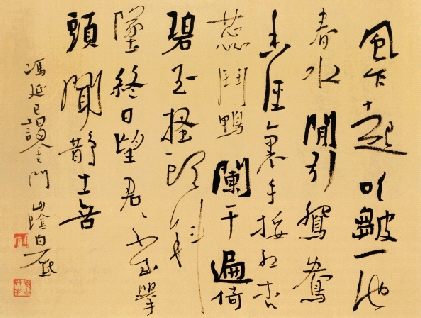 風乍起吹皺一池
春水閒引鴛鴦
香徑裏手挼紅杏
蕊鬥鴨闌干遍倚
碧玉搔頭斜
墜終日望君〻不至舉
頭聞鵲喜
馮延巳謁金門 山陰白